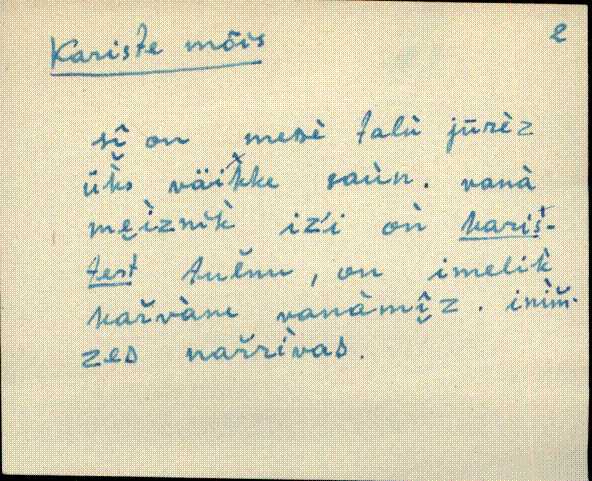 Kariste mõis
2
sî on mesè talù jūrèz
üks väikke saùn. vanà
mei̯znìk iz'i òn kariš-
test tulnu, on imelìk
karvàne vanàmîz. inìm-
zes narrìvas.